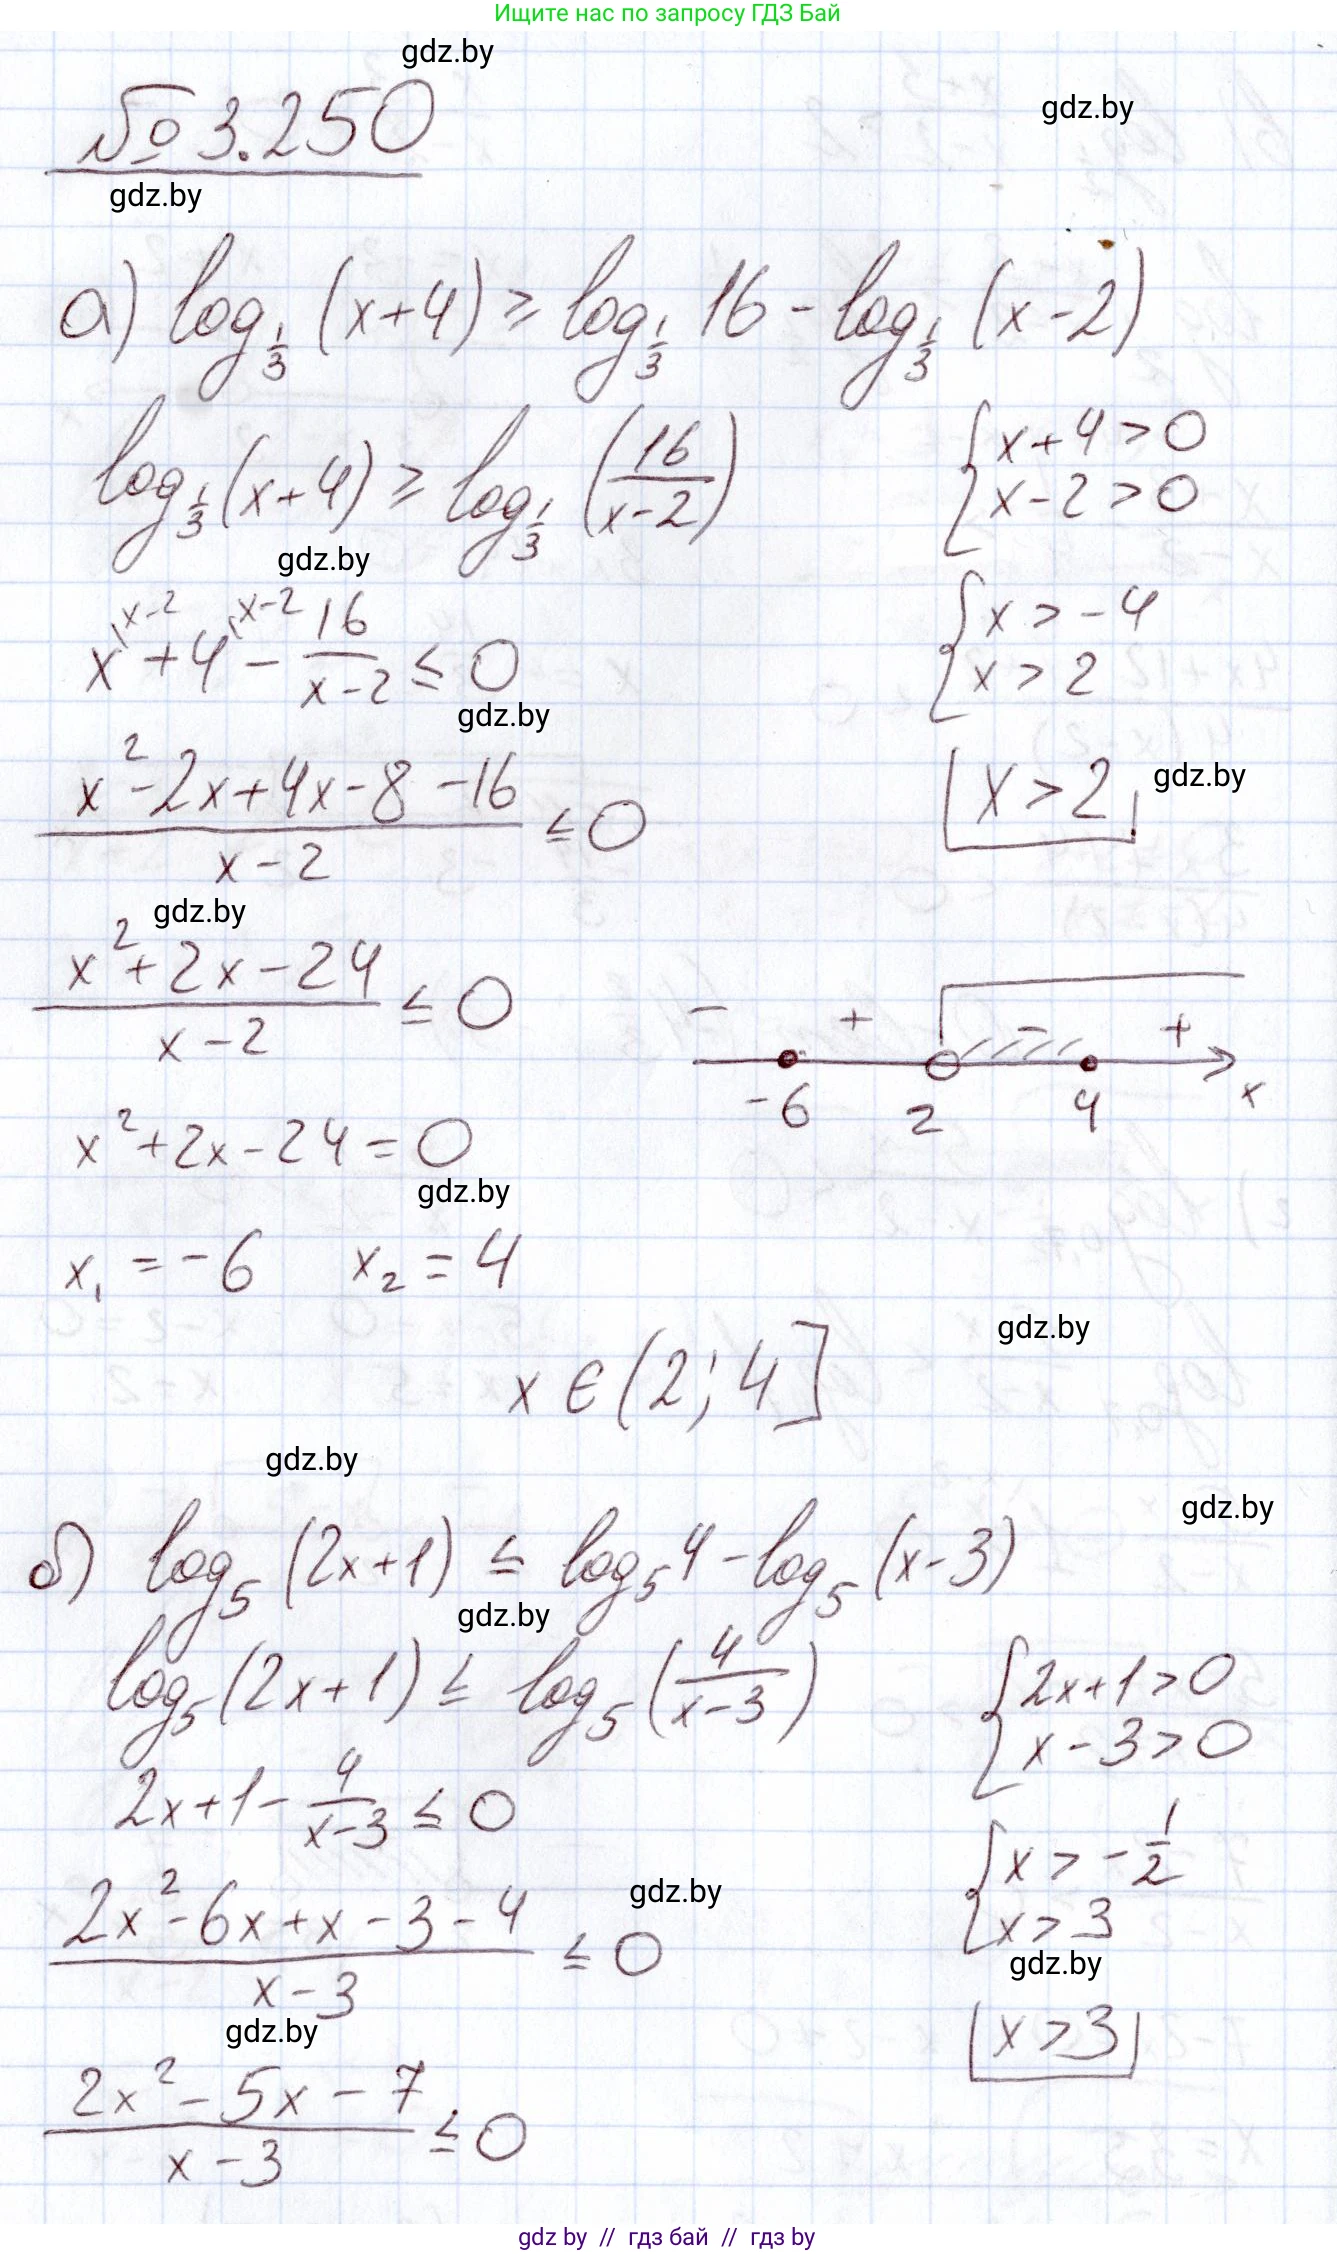 Ищите нас по запросу ГДЗ Бай
gdz.by
№ 3.250
gdz.by
gdz.by
а) log_{1/3} (x+4) ≥ log_{1/3} 16 - log_{1/3} (x-2)
log_{1/3} (x+4) ≥ log_{1/3} (16/(x-2))
{ x+4 > 0
x-2 > 0
gdz.by
x^{\x-2} + 4^{\x-2} - 16/(x-2) ≤ 0
{ x > -4
x > 2
gdz.by
(x²-2x+4x-8-16)/(x-2) ≤ 0
x > 2
gdz.by
gdz.by
(x²+2x-24)/(x-2) ≤ 0
- + - +
-6 2 4 x
x²+2x-24=0
gdz.by
x₁ = -6 x₂ = 4
gdz.by
x ∈ (2; 4]
gdz.by
gdz.by
б) log₅ (2x+1) ≤ log₅ 4 - log₅ (x-3)
gdz.by
log₅ (2x+1) ≤ log₅ (4/(x-3))
{ 2x+1 > 0
x-3 > 0
2x+1 - 4/(x-3) ≤ 0
{ x > -1/2
x > 3
gdz.by
(2x²-6x+x-3-4)/(x-3) ≤ 0
gdz.by
x > 3
gdz.by
(2x²-5x-7)/(x-3) ≤ 0
gdz by // гдз бай // гдз by